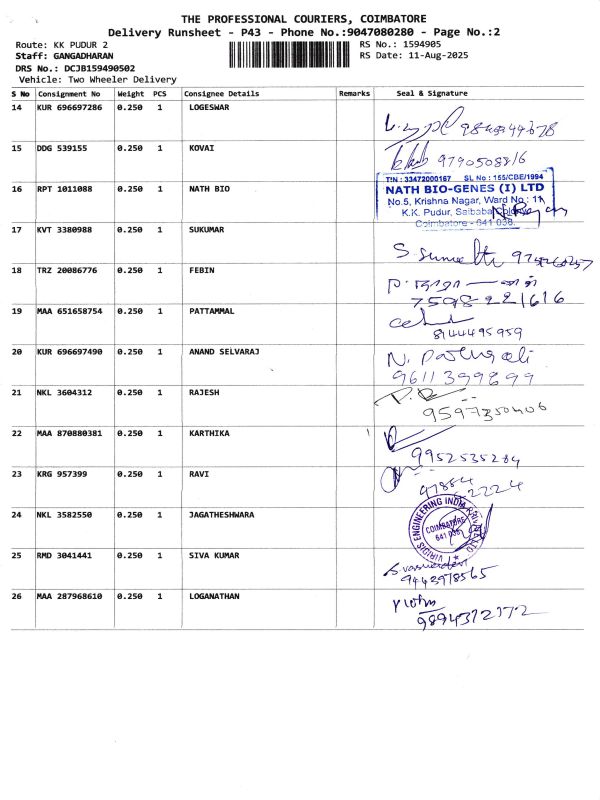 THE PROFESSIONAL COURIERS, COIMBATORE
Delivery Runsheet - P43 - Phone No.:9047080280 - Page No.:2
Route: KK PUDUR 2 RS No.: 1594905
Staff: GANGADHARAN RS Date: 11-Aug-2025
DRS No.: DCJB159490502
Vehicle: Two Wheeler Delivery
S No Consignment No Weight PCS Consignee Details Remarks Seal & Signature
14 KUR 696697286 0.250 1 LOGESWAR
15 DDG 539155 0.250 1 KOVAI
9790508816
16 RPT 1011088 0.250 1 NATH BIO
TIN : 33472000167 SL No : 155/CBE/1994
NATH BIO-GENES (I) LTD
No.5, Krishna Nagar, Ward No : 11,
K.K. Pudur, Saibaba Colony
Coimbatore - 641 038.
17 KVT 3380988 0.250 1 SUKUMAR
18 TRZ 20086776 0.250 1 FEBIN
7598221616
19 MAA 651658754 0.250 1 PATTAMMAL
8144495959
20 KUR 696697490 0.250 1 ANAND SELVARAJ
9611399899
21 NKL 3604312 0.250 1 RAJESH
22 MAA 870880381 0.250 1 KARTHIKA
9952535284
23 KRG 957399 0.250 1 RAVI
24 NKL 3582550 0.250 1 JAGATHESHWARA
VIRIDIS ENGINEERING INDIA PRIVATE LTD
COIMBATORE
641 038
25 RMD 3041441 0.250 1 SIVA KUMAR
9443978565
26 MAA 287968610 0.250 1 LOGANATHAN
9894372172